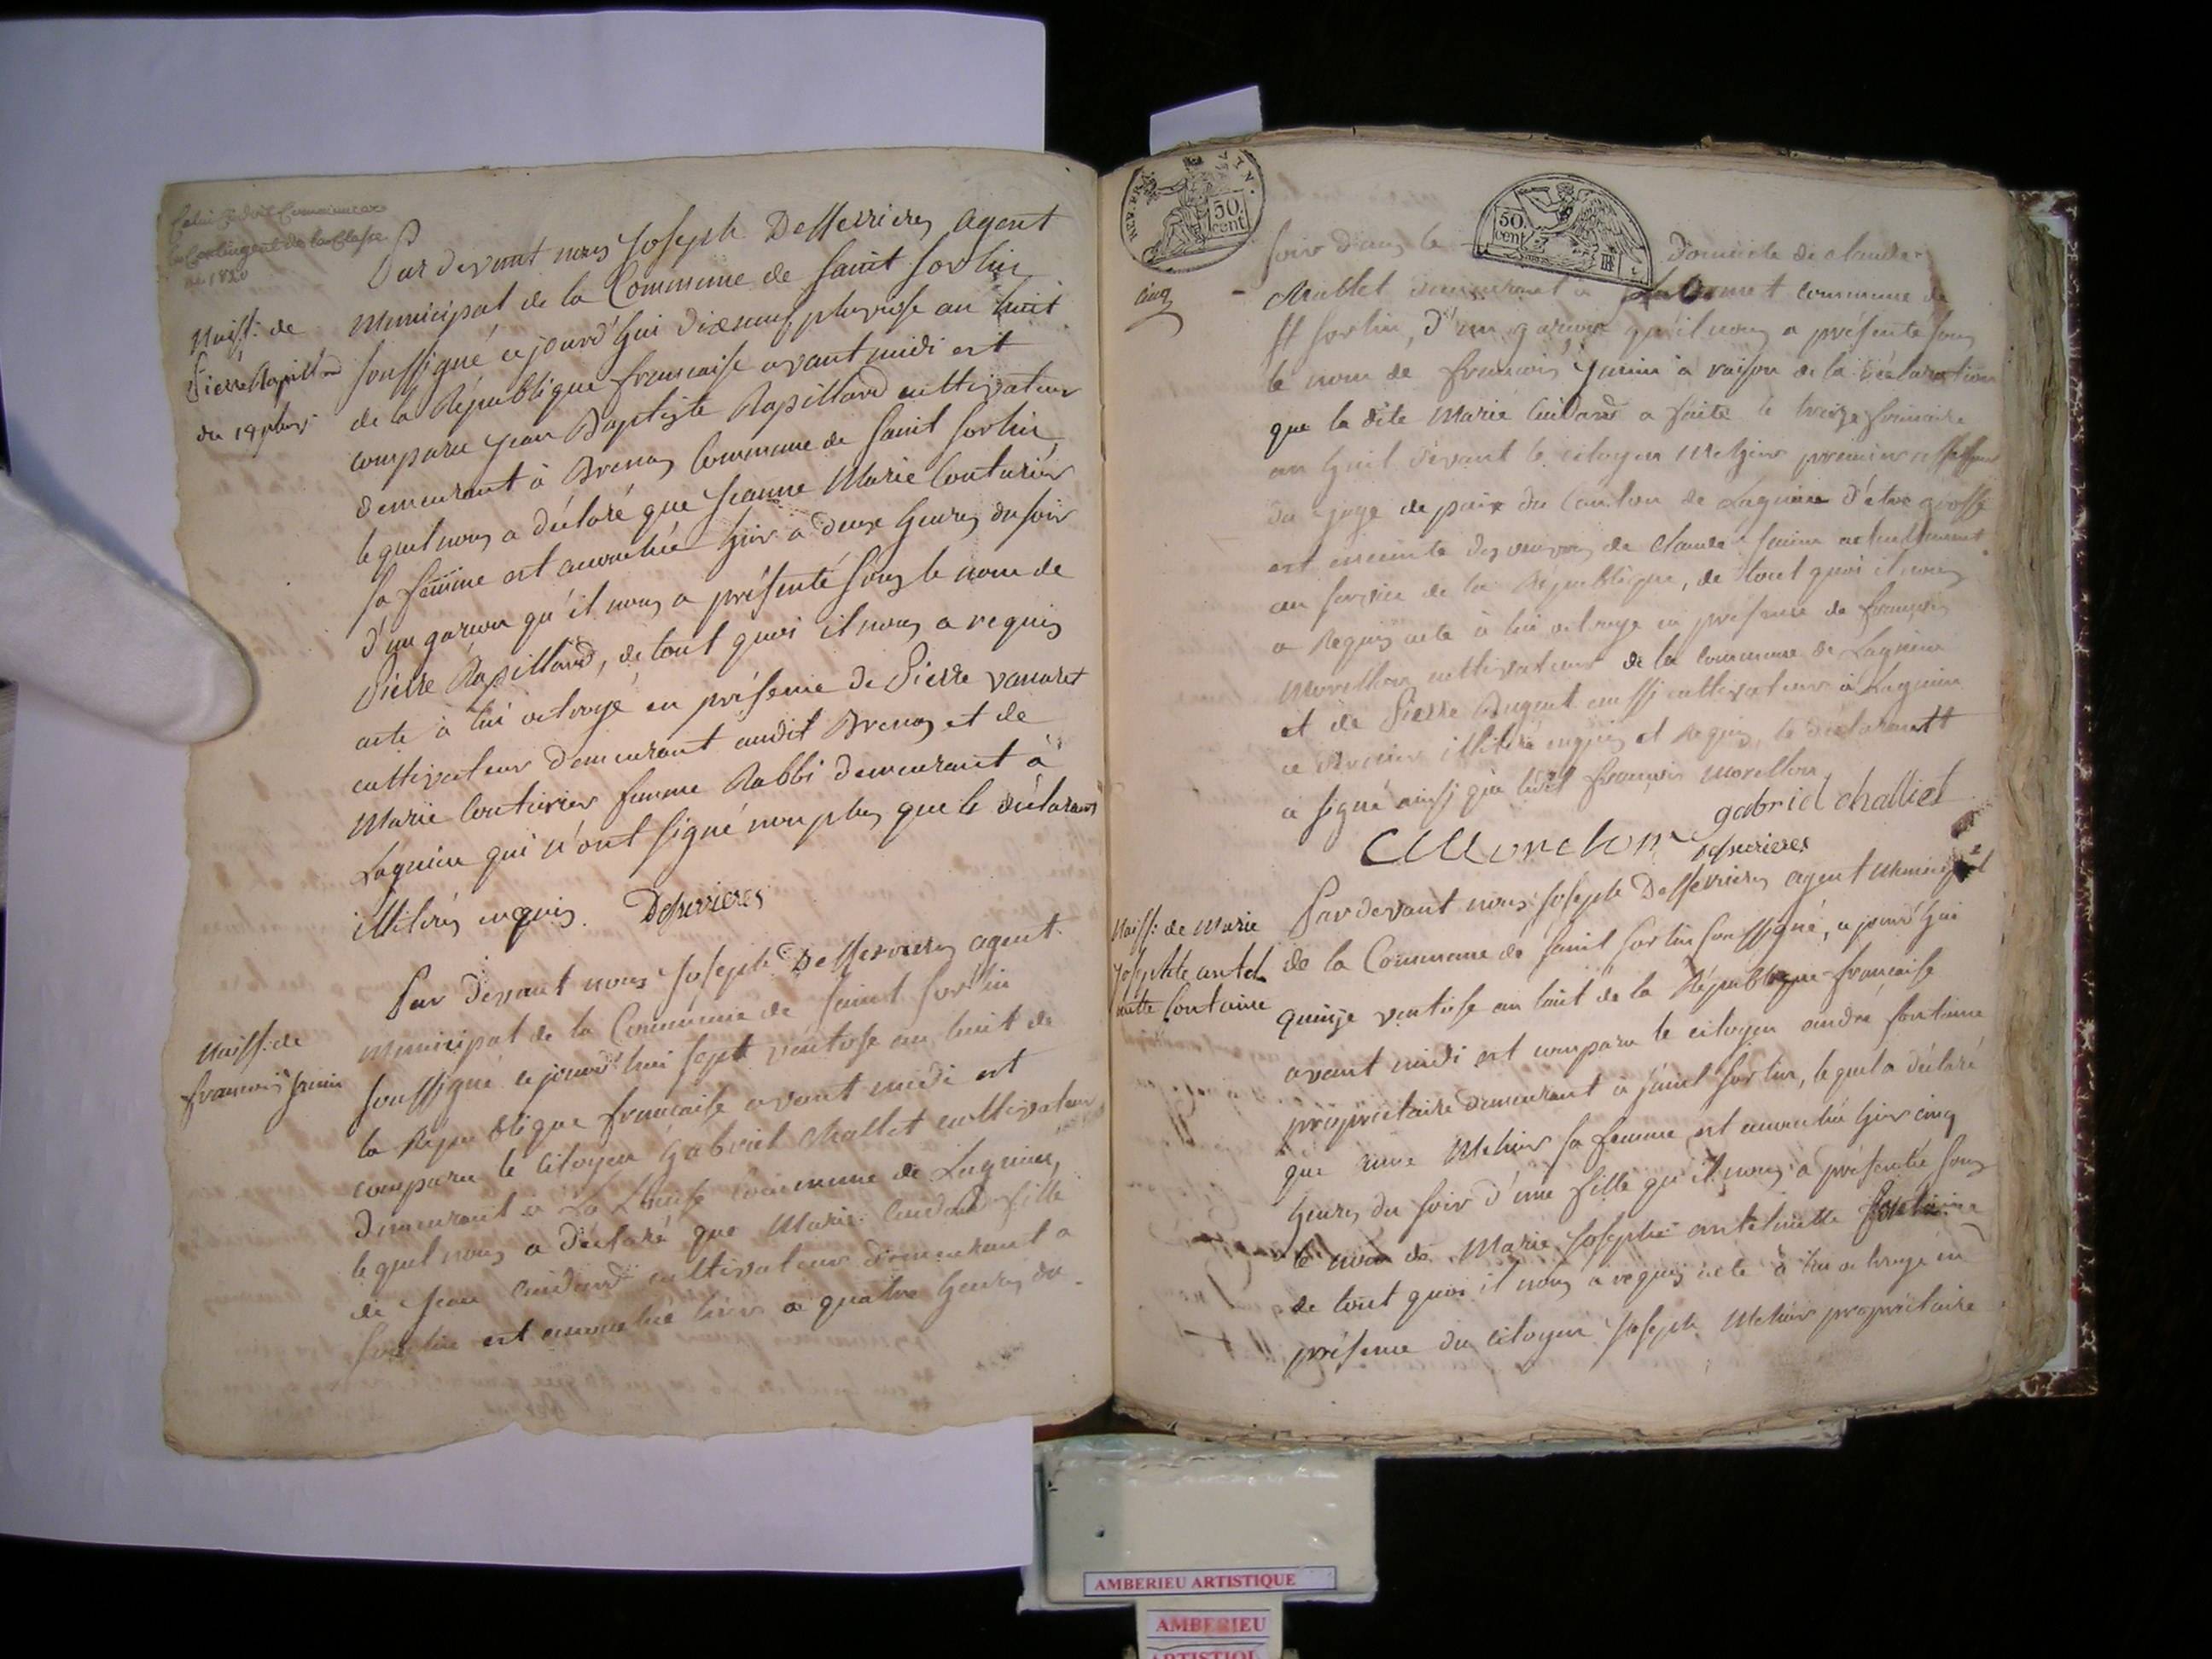 Celui Ci doit Commencer
le Contingent de la Classe
de 1820
Par devant nous Joseph Desserrieres agent
municipal de la Commune de Saint Sorlin
soussigné cejourd'hui dixneuf pluviose an huit
de la République francaise avant midi est
comparu Jean Baptiste Rapillard cultivateur
demeurant à Brenas Commune de Saint Sorlin
lequel nous a déclaré que Jeanne Marie Couturier
sa femme est accouchée hier à deux heures du soir
d'un garcon qu'il nous a présenté sous le nom de
Pierre Rapillard, de tout quoi il nous a requis
acte à lui octroyé en présence de Pierre vanaret
cultivateur demeurant audit Brenas et de
Marie Couturier femme Rabbi demeurant à
Lagnieu qui n'ont signé non plus que le déclarant
illitérés enquis. Desserrieres
Naiss: de
Pierre Rapillard
du 19 pluvs
Par devant nous Joseph Desserrieres agent
municipal de la Commune de Saint Sorlin
soussigné cejourd'hui sept ventose an huit de
la République francaise avant midi est
comparu le Citoyen Gabriel Challet cultivateur
demeurant à commune de Lagnieu,
lequel nous a déclaré que Marie Cuidard fille
de Jean Cuidard cultivateur demeurant a
Sorlin est accouchée hier a quatre heures du
Naiss: de
francois Janin
REP. FRA.
50
cent
50.
cent
RF
cinq
soir dans le domicile de claude
Mullet demeurant à commune de
St Sorlin, d'un garcon qu'il nous a présenté sous
le nom de francois Janin à raison de la déclaration
que la dite Marie Cuidard a faite le treize frimaire
an huit devant le citoyen Mehier premier assesseur
du juge de paix du Canton de Lagnieu d'être grosse
est enceinte des oeuvres de Claude Janin actuellement
au service de la République, de tout quoi il nous
a Requis acte à lui octroyé en présence de francois
Morellon cultivateur de la commune de Lagnieu
et de Pierre Bugent aussi cultivateur à Lagnieu
ce dernier illitéré enquis et Requis, le déclarant
a signé ainsi que ledit francois Morellon
gabriel challiet
Desserrieres
Par devant nous Joseph Desserrieres agent municipal
de la Commune de Saint Sorlin soussigné, cejourd'hui
quinze ventose an huit de la République francaise
avant midi est comparu le citoyen andré fontaine
propriétaire demeurant à saint Sorlin, lequel a déclaré
que Mehier sa femme est accouchée hier cinq
heures du soir d'une fille qu'il nous a présentée sous
le nom de Marie Josephe antelmette fontaine
de tout quoi il nous a requis acte à lui octroyé en
présence du citoyen Joseph Mehier propriétaire
Naiss: de Marie
Josephte antel
mette fontaine
AMBERIEU ARTISTIQUE
AMBERIEU
ARTISTIQU